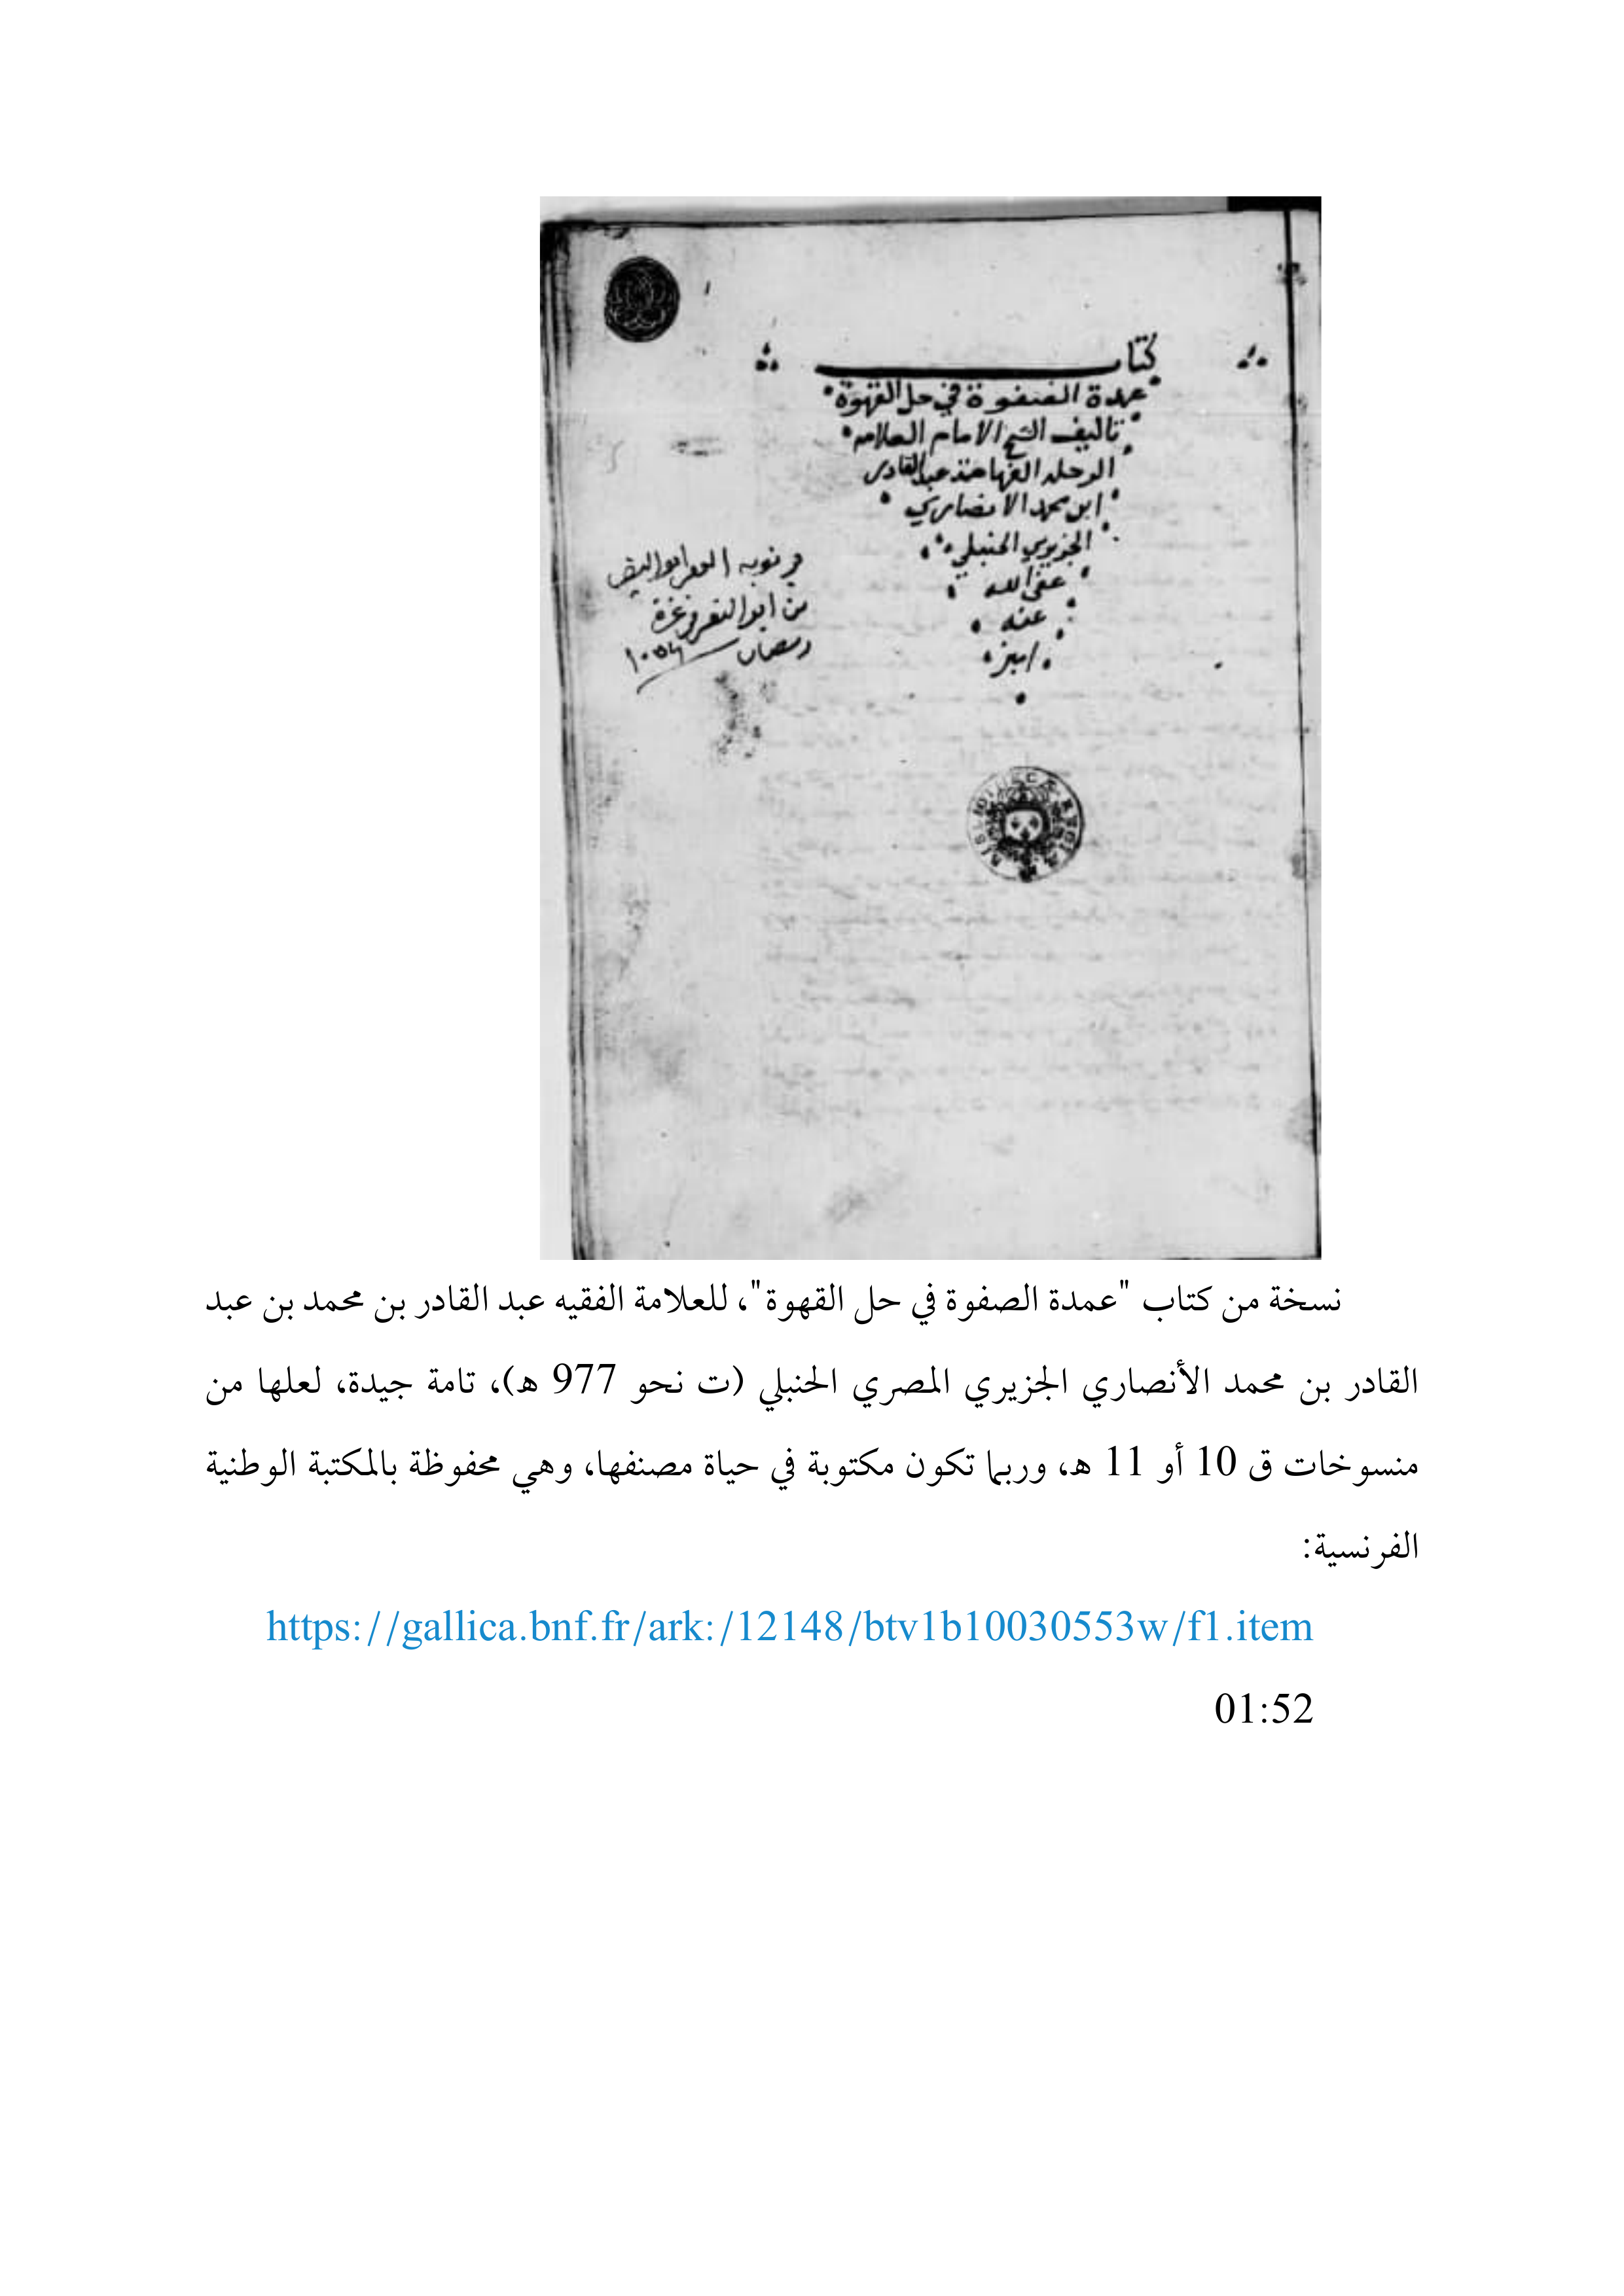 كتاب
عمدة الصفوة في حل القهوة
تاليف الشيخ الامام العلامه
عبد القادر
ابن محمد الانصاري
الجزيري الحنبلي
عفى الله
عنه
امين
في نوبه
من ابو النصر غزة
رمضان
نسخة من كتاب "عمدة الصفوة في حل القهوة"، للعلامة الفقيه عبد القادر بن محمد بن عبد
القادر بن محمد الأنصاري الجزيري المصري الحنبلي (ت نحو 977 هـ)، تامة جيدة، لعلها من
منسوخات ق 10 أو 11 هـ، وربما تكون مكتوبة في حياة مصنفها، وهي محفوظة بالمكتبة الوطنية
الفرنسية:
https://gallica.bnf.fr/ark:/12148/btv1b10030553w/f1.item
01:52